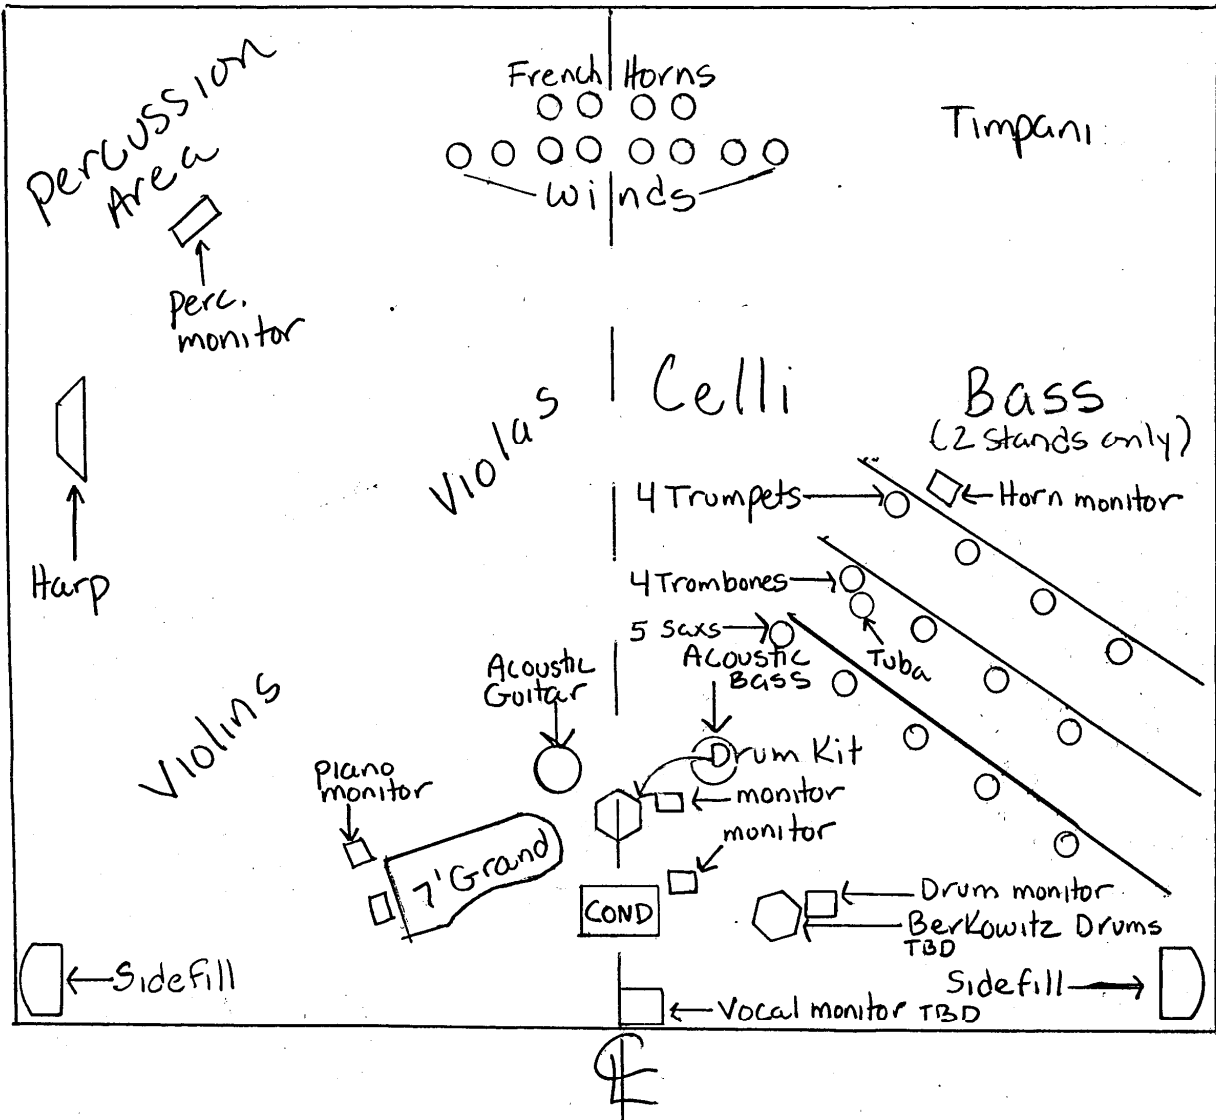 Percussion
Area
French Horns
Winds
Timpani
Perc.
monitor
Harp
Violas
Celli
Bass
(2 stands only)
4 Trumpets
Horn monitor
4 Trombones
5 Saxs
Tuba
Acoustic
Bass
Acoustic
Guitar
Violins
Drum Kit
piano
monitor
monitor
monitor
7' Grand
COND
Drum monitor
Berkowitz Drums
TBD
Sidefill
Sidefill
Vocal monitor TBD
CL